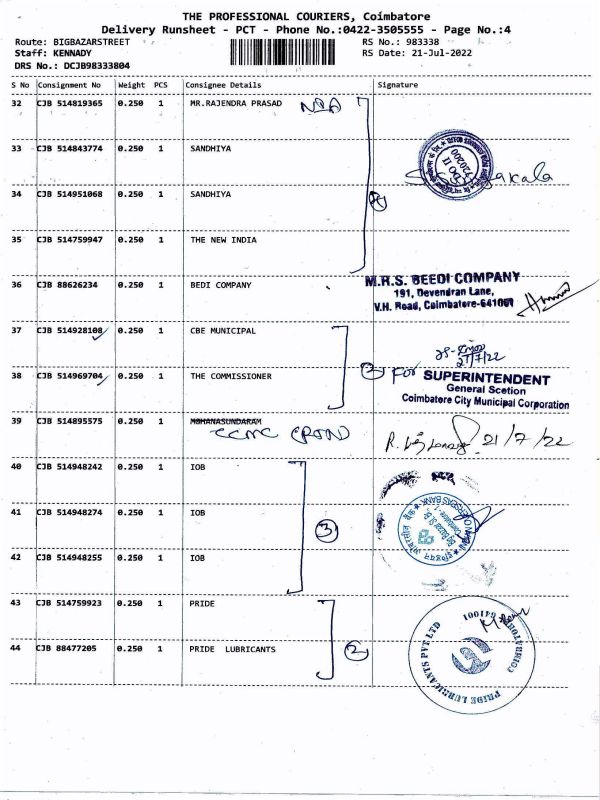 THE PROFESSIONAL COURIERS, Coimbatore
Delivery Runsheet - PCT - Phone No.:0422-3505555 - Page No.:4
Route: BIGBAZARSTREET RS No.: 983338
Staff: KENNADY RS Date: 21-Jul-2022
DRS No.: DCJB98333804
S No Consignment No Weight PCS Consignee Details Signature
32 CJB 514819365 0.250 1 MR.RAJENDRA PRASAD
33 CJB 514843774 0.250 1 SANDHIYA
34 CJB 514951068 0.250 1 SANDHIYA
35 CJB 514759947 0.250 1 THE NEW INDIA
36 CJB 88626234 0.250 1 BEDI COMPANY
M.R.S. BEEDI COMPANY
191, Devendran Lane,
V.H. Road, Coimbatore-641001
37 CJB 514928108 0.250 1 CBE MUNICIPAL
21/7/22
38 CJB 514969704 0.250 1 THE COMMISSIONER
2 For SUPERINTENDENT
General Scetion
Coimbatore City Municipal Corporation
39 CJB 514895575 0.250 1 MOHANASUNDARAM
CCMC
21/7/22
40 CJB 514948242 0.250 1 IOB
41 CJB 514948274 0.250 1 IOB
3
42 CJB 514948255 0.250 1 IOB
43 CJB 514759923 0.250 1 PRIDE
44 CJB 88477205 0.250 1 PRIDE LUBRICANTS
2
PRIDE LUBRICANTS PVT LTD
COIMBATORE 641001